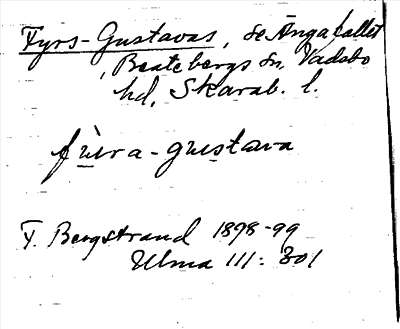 Fyrs-Gustavas, se Ängafallet
, Beatebergs sn, Vadsbo
hd, Skarab. l.
fu̱ra-gu̱stava
F. Bergstrand 1898-99
Ulma 111: 301